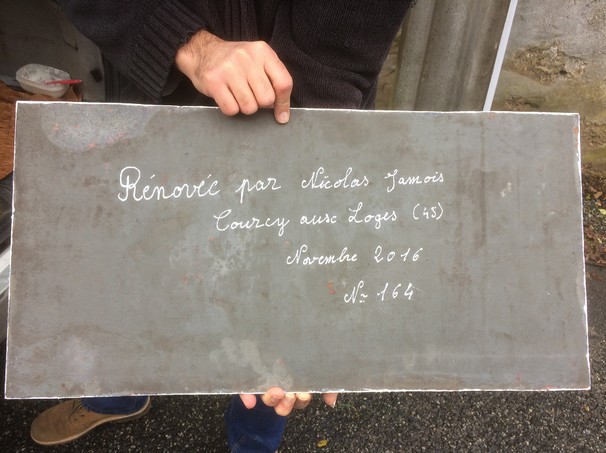 Rénové par Nicolas Jamois
Courcy aux Loges (45)
Novembre 2016
N° 164